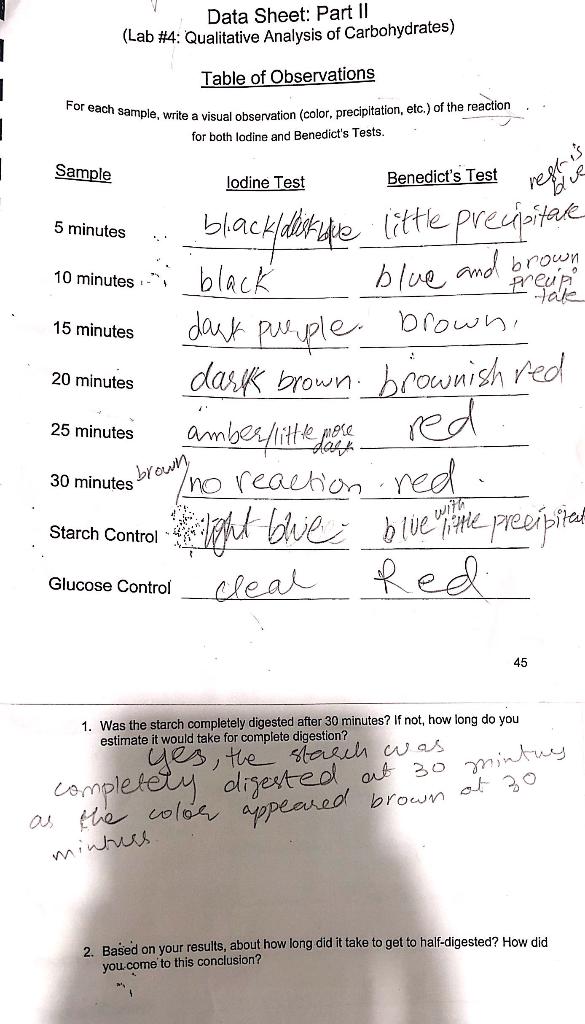 Data Sheet: Part II
(Lab #4: Qualitative Analysis of Carbohydrates)
Table of Observations
For each sample, write a visual observation (color, precipitation, etc.) of the reaction
for both Iodine and Benedict's Tests.
Sample Iodine Test Benedict's Test rest is blue
5 minutes black/dark blue little precipitate
10 minutes black blue and brown precipitate
15 minutes dark purple. brown.
20 minutes dark brown. brownish red
25 minutes amber/little more dark red
30 minutes brown/no reaction. red.
Starch Control light blue blue with little precipitat
Glucose Control clear Red
45
1. Was the starch completely digested after 30 minutes? If not, how long do you
estimate it would take for complete digestion?
yes, the starch was
completely digested at 30 mintues
as the color appeared brown at 30
mintuss.
2. Based on your results, about how long did it take to get to half-digested? How did
you come to this conclusion?